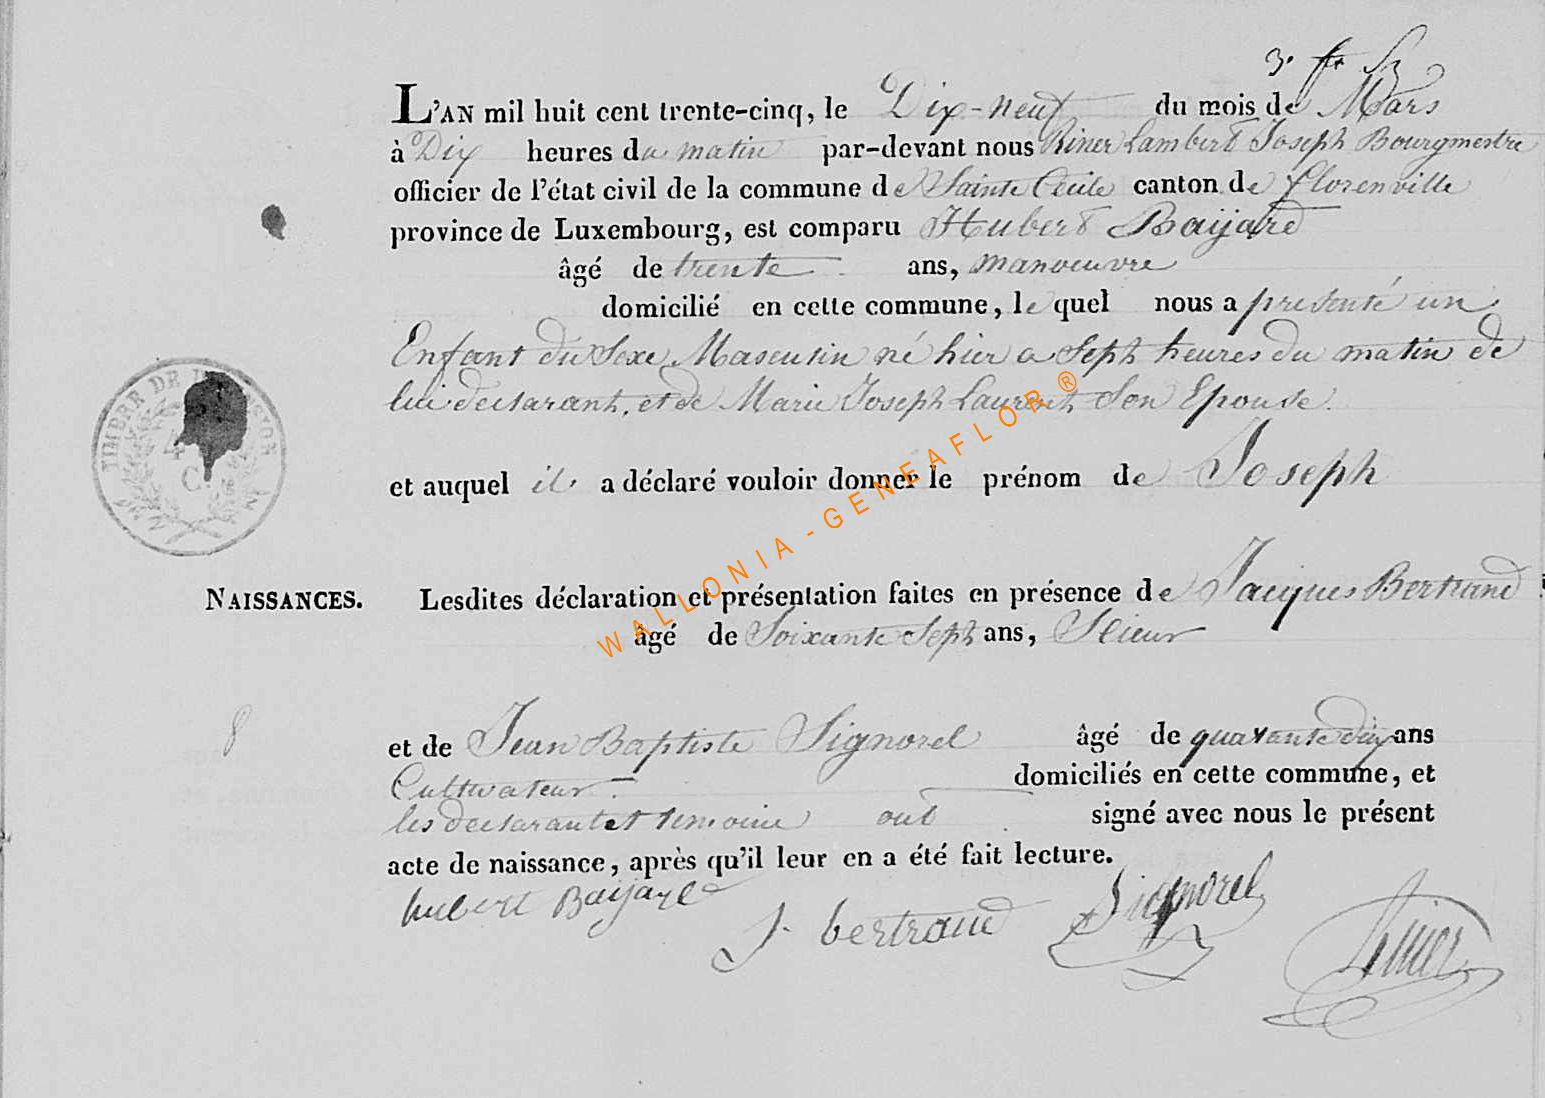 3. fr
L'AN mil huit cent trente-cinq, le Dix-neuf du mois de Mars
à Dix heures du matin par-devant nous Riner Lambert Joseph Bourgmestre
officier de l'état civil de la commune de Sainte Cecile canton de florenville
province de Luxembourg, est comparu Hubert Baijard
âgé de trente ans, manoeuvre
domicilié en cette commune, le quel nous a presenté un
Enfant du Sexe Masculin né hier a Seph heures du matin de
lui declarant, et de Marie Joseph Laurent Son Epouse.
et auquel il a déclaré vouloir donner le prénom de Joseph
NAISSANCES. Lesdites déclaration et présentation faites en présence de Jacques Bertrand
âgé de Soixante Seph ans,
8
et de Jean Baptiste Signorel âgé de quarante dix ans
Cultivateur domiciliés en cette commune, et
les declarant et temoins ont signé avec nous le présent
acte de naissance, après qu'il leur en a été fait lecture.
hubert Baijard
J. bertrand
Signorel
TIMBRE DE
4
C.
WALLONIA - GENEAFLOR ®